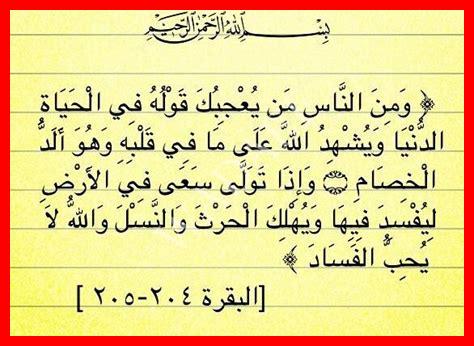 بِسْمِ اللهِ الرَّحْمٰنِ الرَّحِيْمِ
﴿ وَمِنَ النَّاسِ مَن يُعْجِبُكَ قَوْلُهُ فِي الْحَيَاةِ
الدُّنْيَا وَيُشْهِدُ اللهَ عَلَى مَا فِي قَلْبِهِ وَهُوَ أَلَدُّ
الْخِصَامِ ۝ وَإِذَا تَوَلَّى سَعَى فِي الأَرْضِ
لِيُفْسِدَ فِيهَا وَيُهْلِكَ الْحَرْثَ وَالنَّسْلَ وَاللهُ لاَ
يُحِبُّ الفَسَادَ ﴾
[البقرة ٢٠٤-٢٠٥ ]